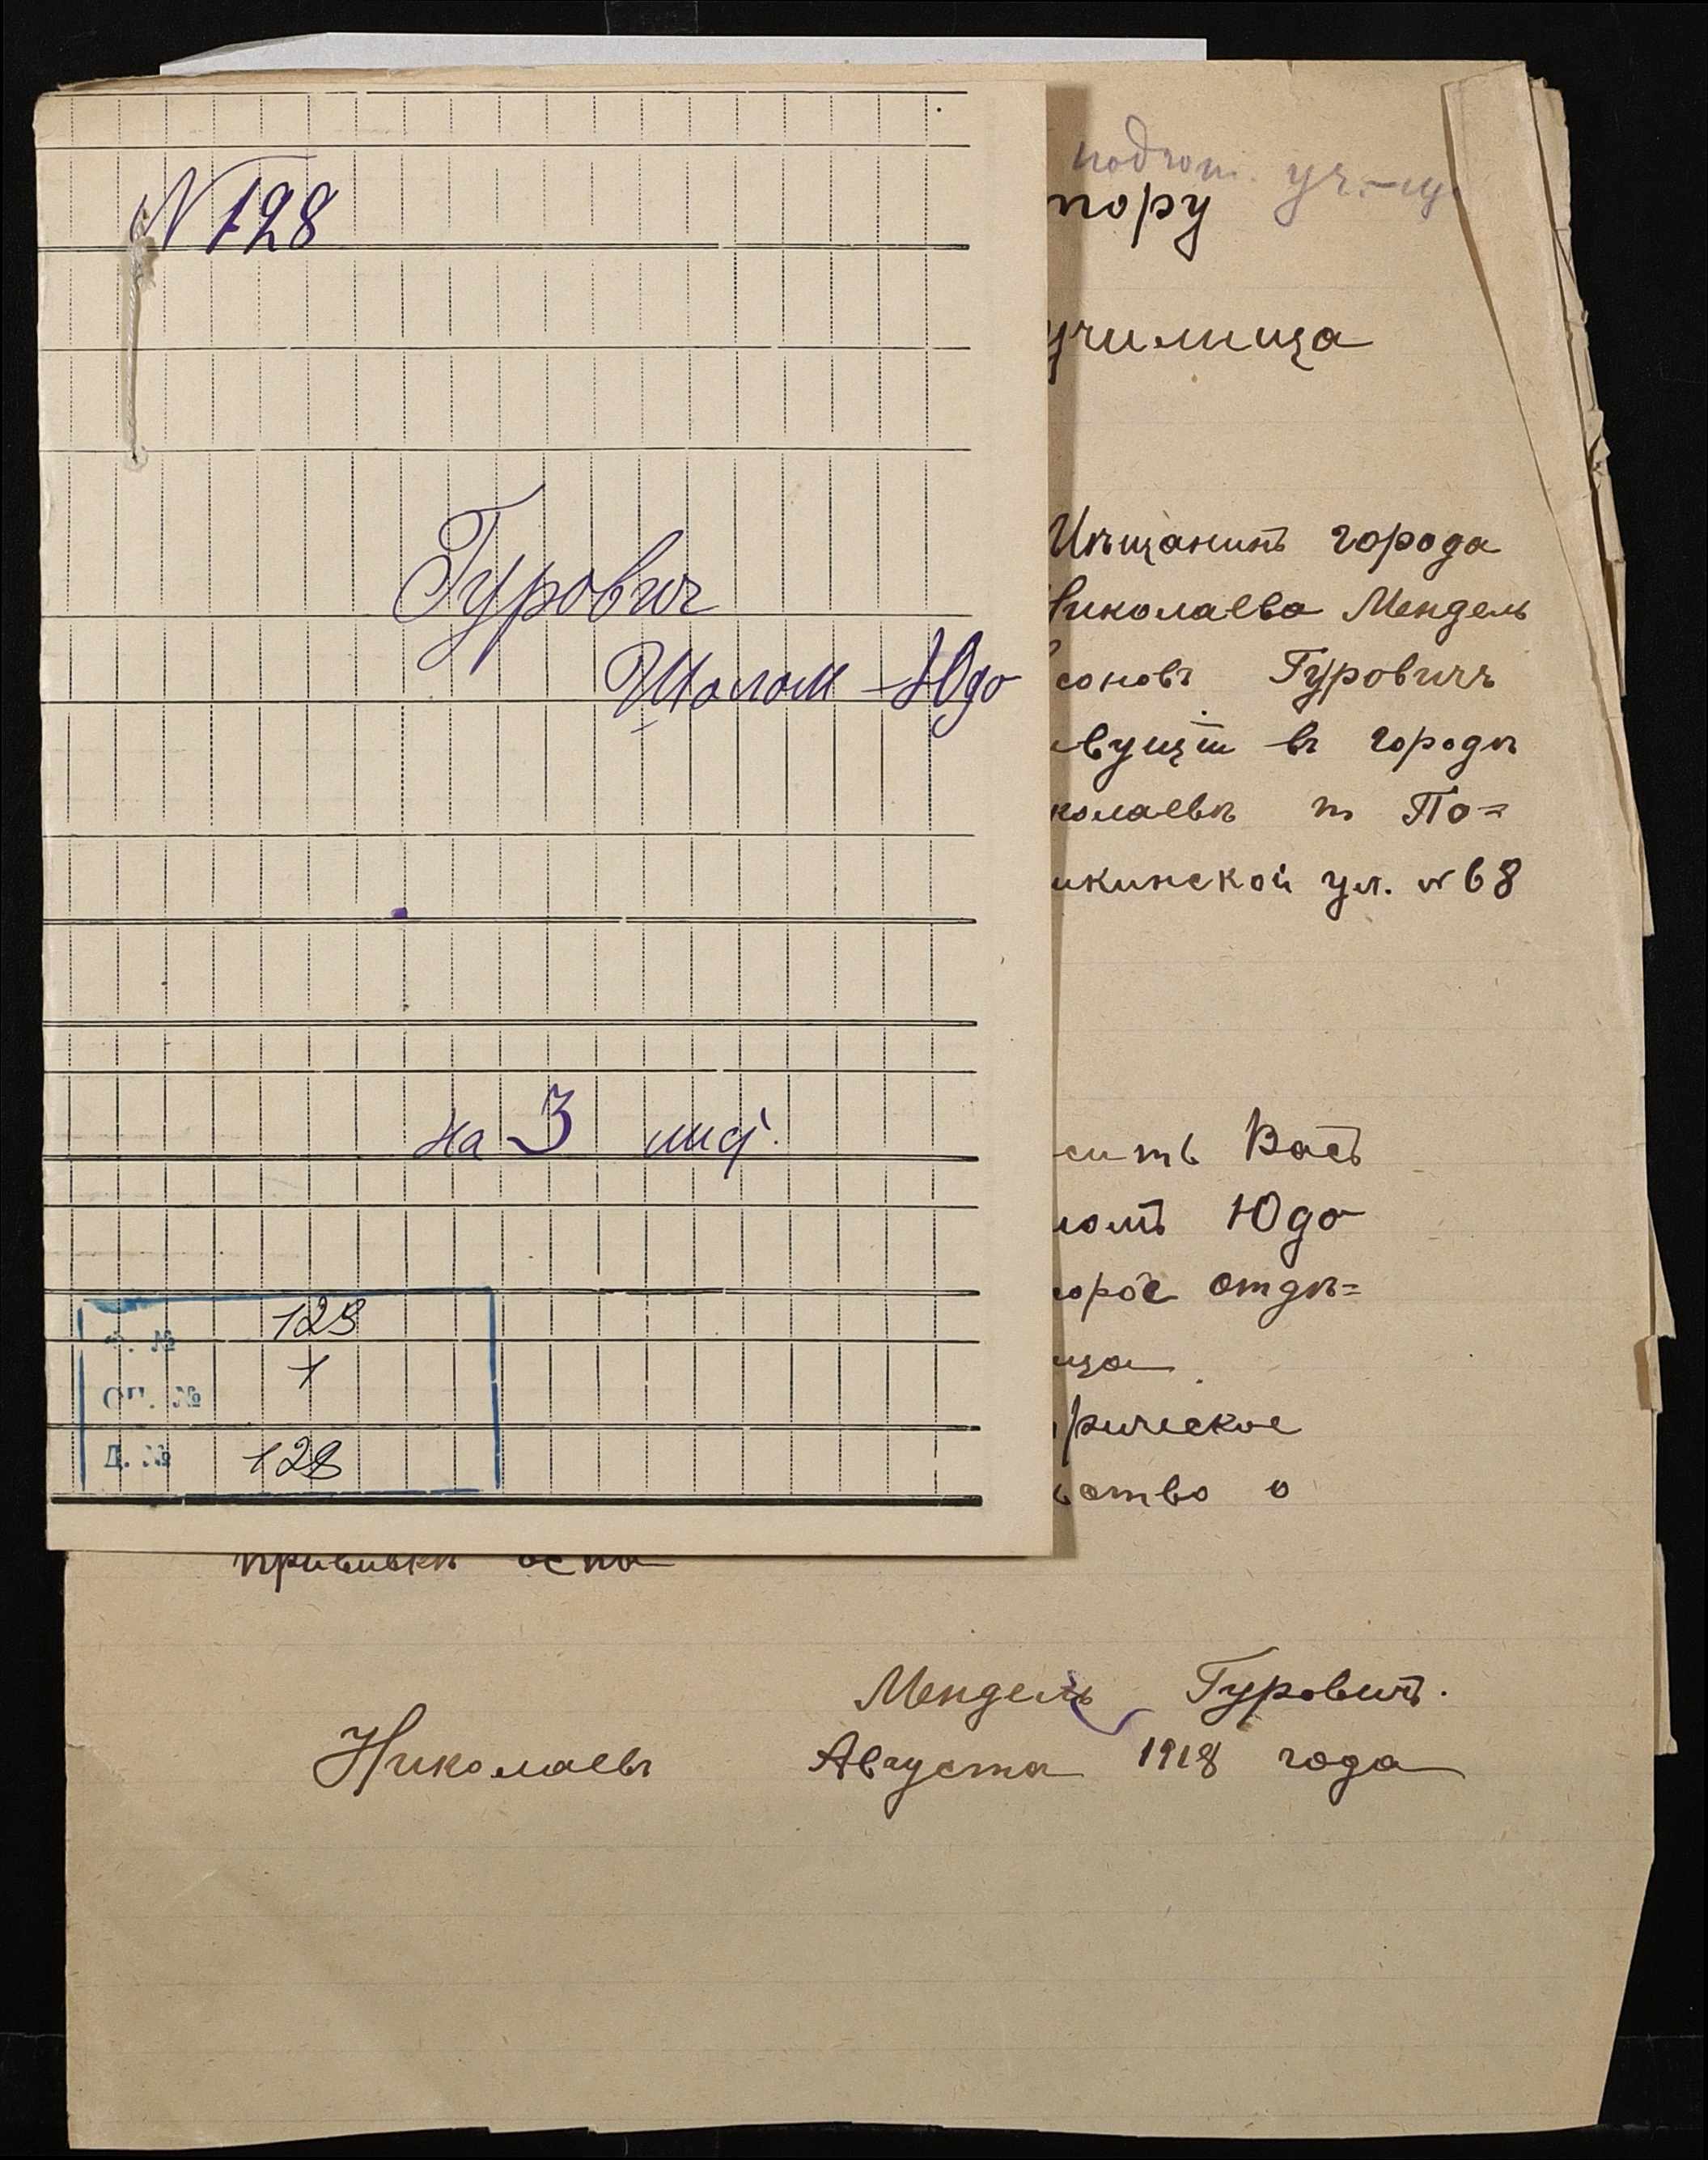 N 128
Гурович
Шолом-Юдо
на 3 лис.
Ф. № 123
ОП. № 1
Д. № 128
подгот. уч-щ
тору
училища
Мѣщанинъ города
Николаева Мендель
соновъ Гуровичъ
вущій въ городѣ
колаевѣ по По=
икинской ул. № 68
сить Васъ
ломъ Юдо
торое отдѣ=
ща
рическое
ьство о
прививкѣ оспы
Мендель Гуровичъ.
Николаевъ Августа 1918 года